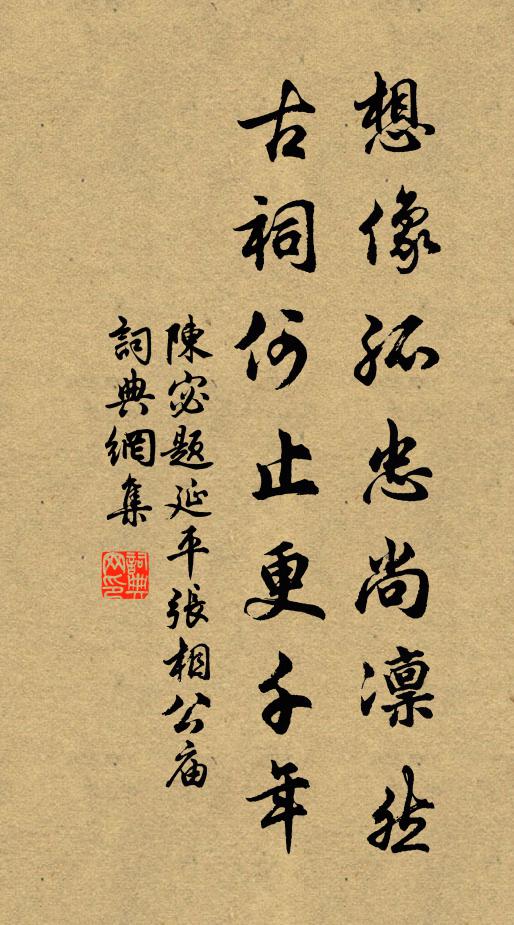 想像孤忠尚凛然
古祠何止更千年
陳宓題延平張相公庙
詞典網集
詞典
网印